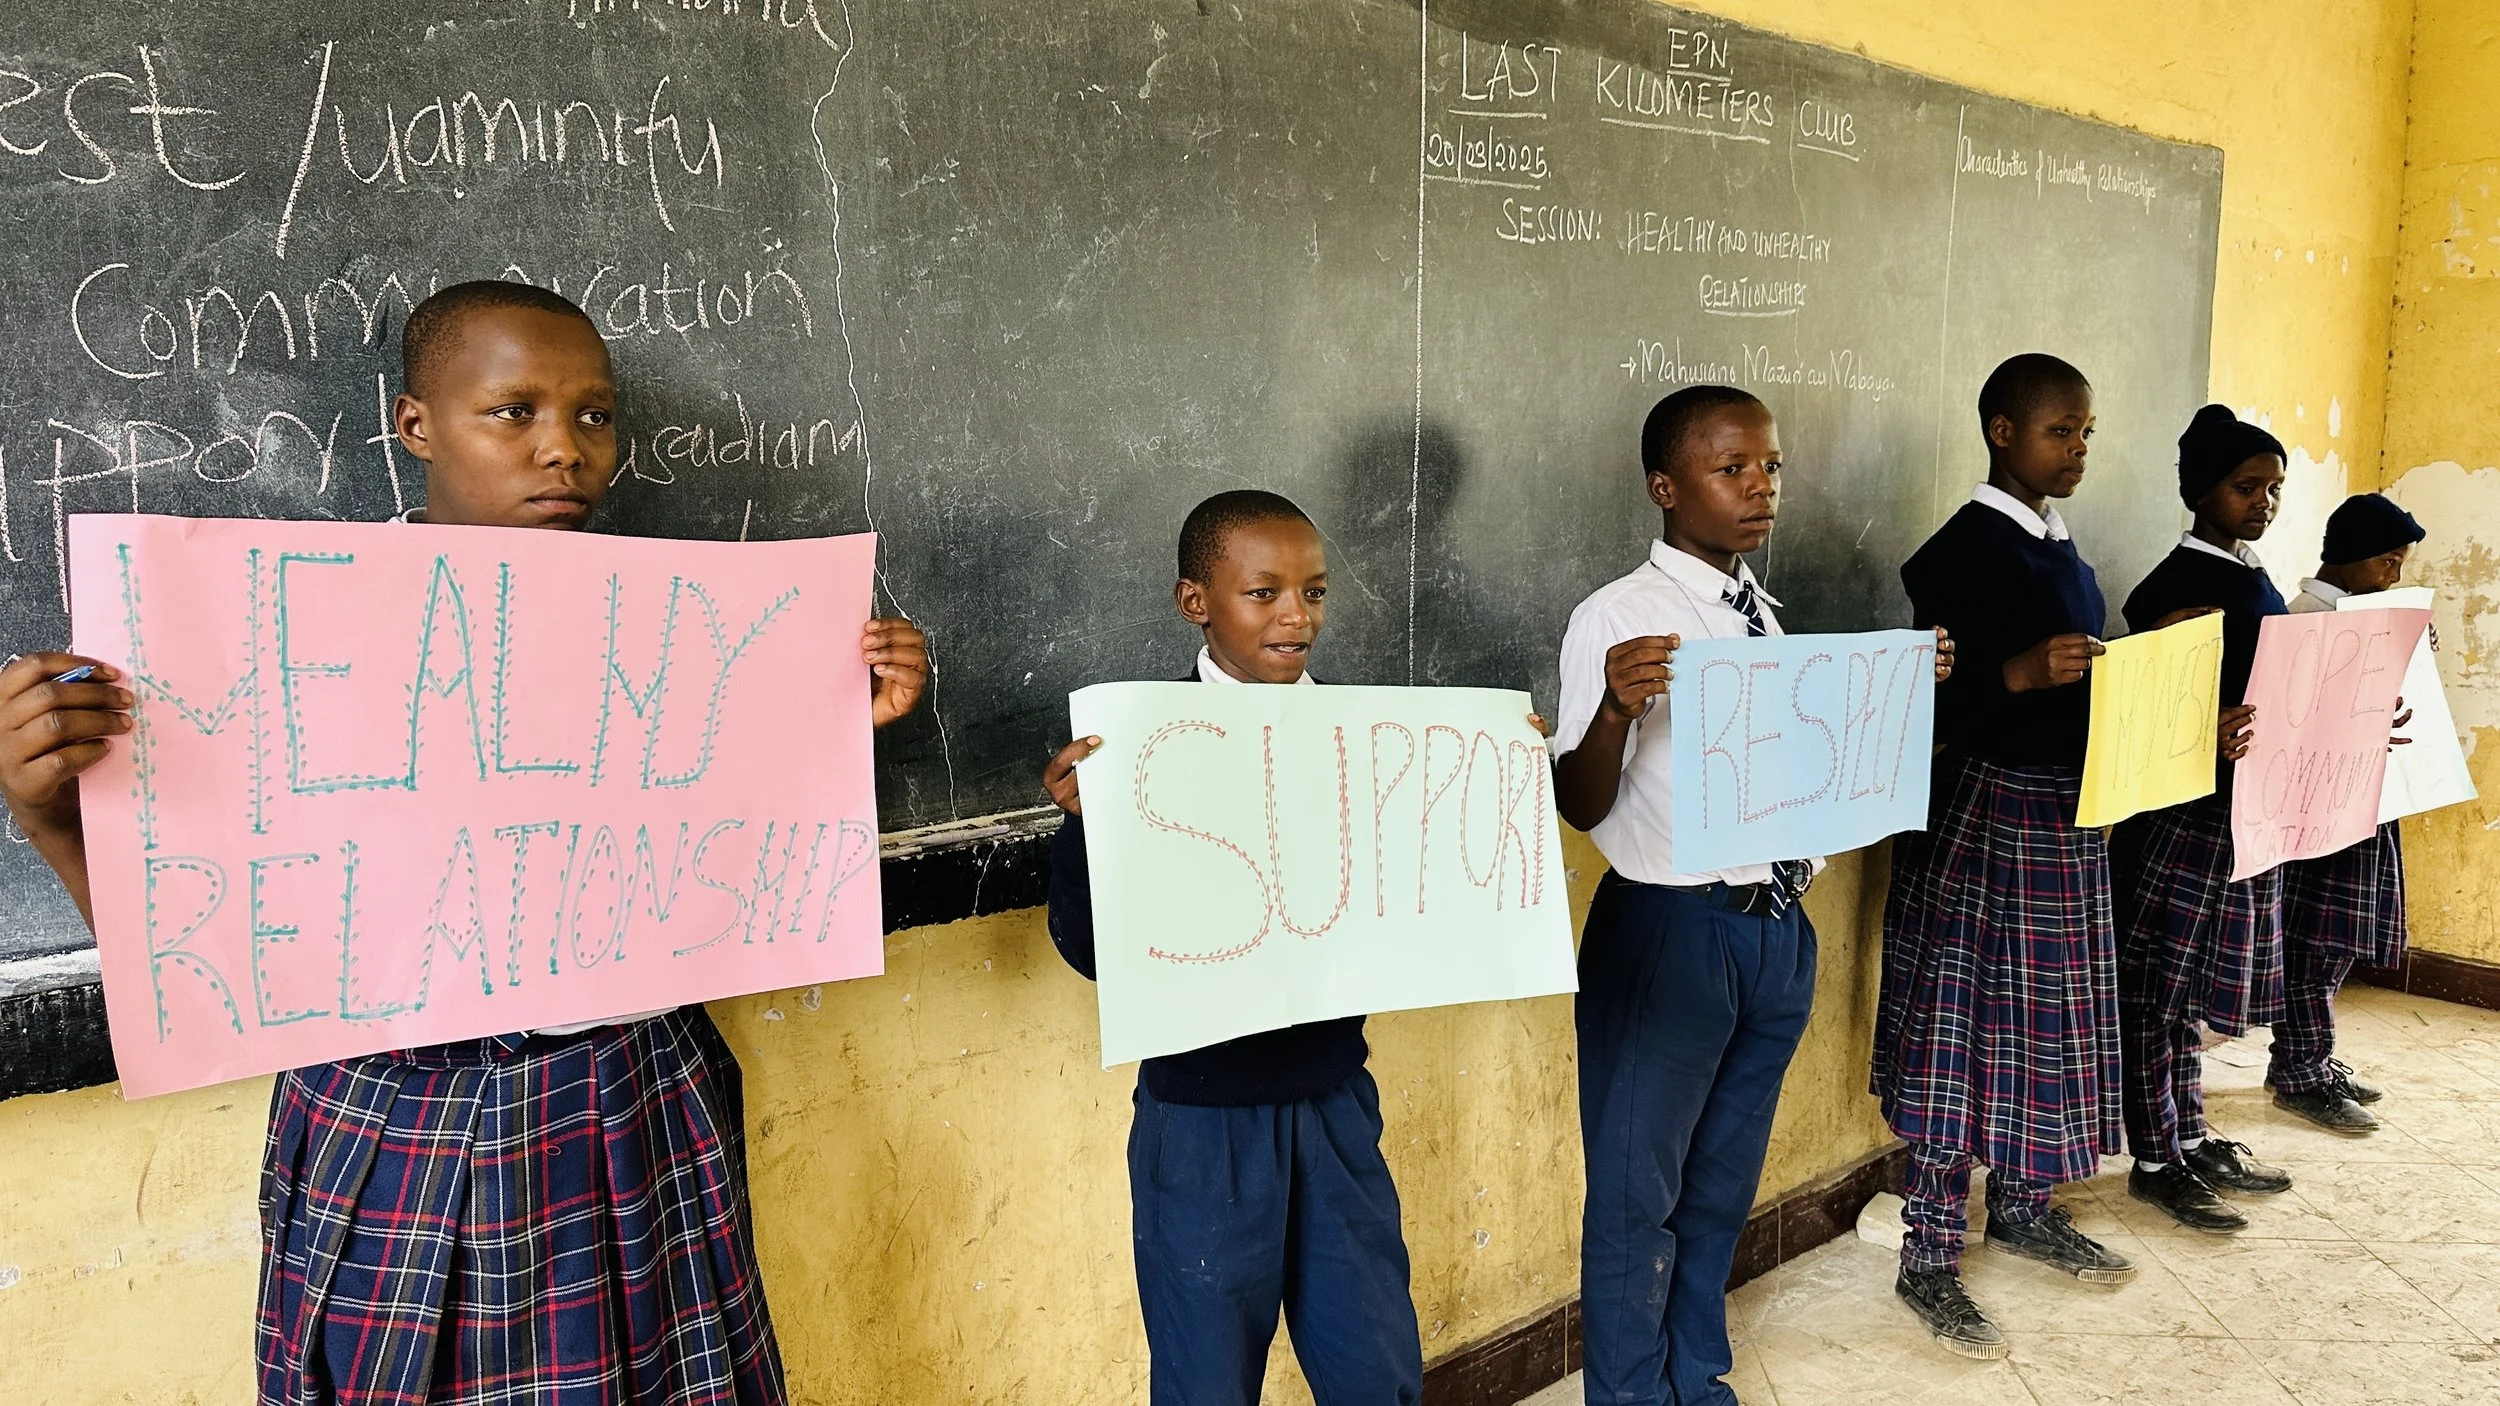 est/uaminifu
Communication
upport kusaidiana
EPN,
LAST KILOMETERS CLUB
20/03/2025.
SESSION: HEALTHY AND UNHEALTHY
RELATIONSHIPS
→ Mahusiano Mazuri au Mabaya.
Characteristics of Unhealthy Relationships
HEALTHY
RELATIONSHIP
SUPPORT
RESPECT
HONEST
OPE
COMMUNI
CATION